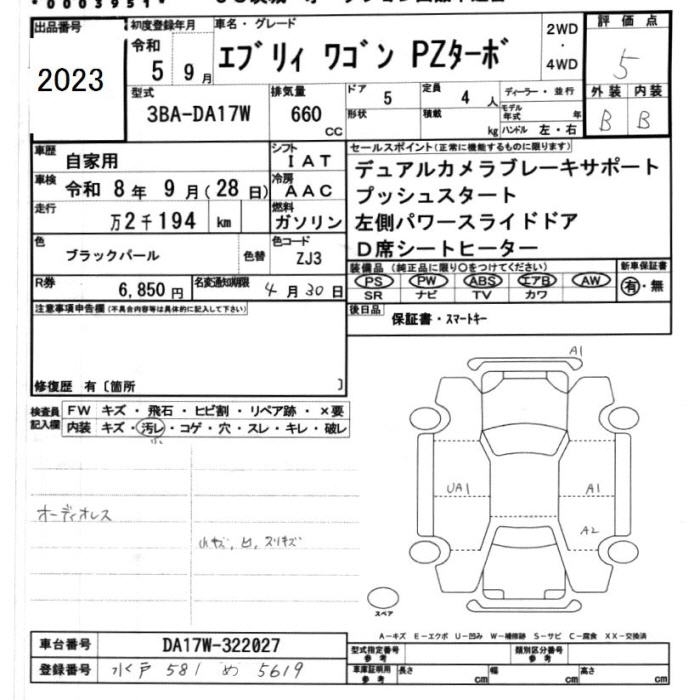 *0003951*
出品番号
2023
初度登録年月
令和
5 9月
車名・グレード
エブリィ ワゴン PZターボ
2WD
・
4WD
評価点
5
型式
3BA-DA17W
排気量
660
CC
ドア
5
形状
定員
4 人
積載
kg
ディーラー・並行
モデル年式 年
ハンドル 左・右
外装 内装
B B
車歴
自家用
シフト
IAT
車検
令和 8年 9月(28日)
冷房
AAC
走行
万2千194 km
燃料
ガソリン
色
ブラックパール
色替
色コード
ZJ3
R券
6,850円
名変通知期限
4月30日
セールスポイント(正常に機能するものに限ります)
デュアルカメラブレーキサポート
プッシュスタート
左側パワースライドドア
D席シートヒーター
装備品(純正品に限り○をつけてください)
PS PW ABS エアB AW
SR ナビ TV カワ
新車保証書
有・無
後日品
保証書・スマートキー
注意事項申告欄(不具合内容等は具体的に記入して下さい)
修復歴 有〔箇所 〕
検査員
記入欄
FW キズ・飛石・ヒビ割・リペア跡・×要
内装 キズ・汚レ・コゲ・穴・スレ・キレ・破レ
小
オーディオレス
小キズ、凹、スリキズ
A1
UA1
A1
A2
スペア
A-キズ E-エクボ U-凹み W-補修跡 S-サビ C-腐食 XX-交換済
車台番号
DA17W-322027
登録番号
水戸 581 め 5619
型式指定番号
参考
類別区分番号
参考
車庫証明用
参考
長さ cm
幅 cm
高さ cm